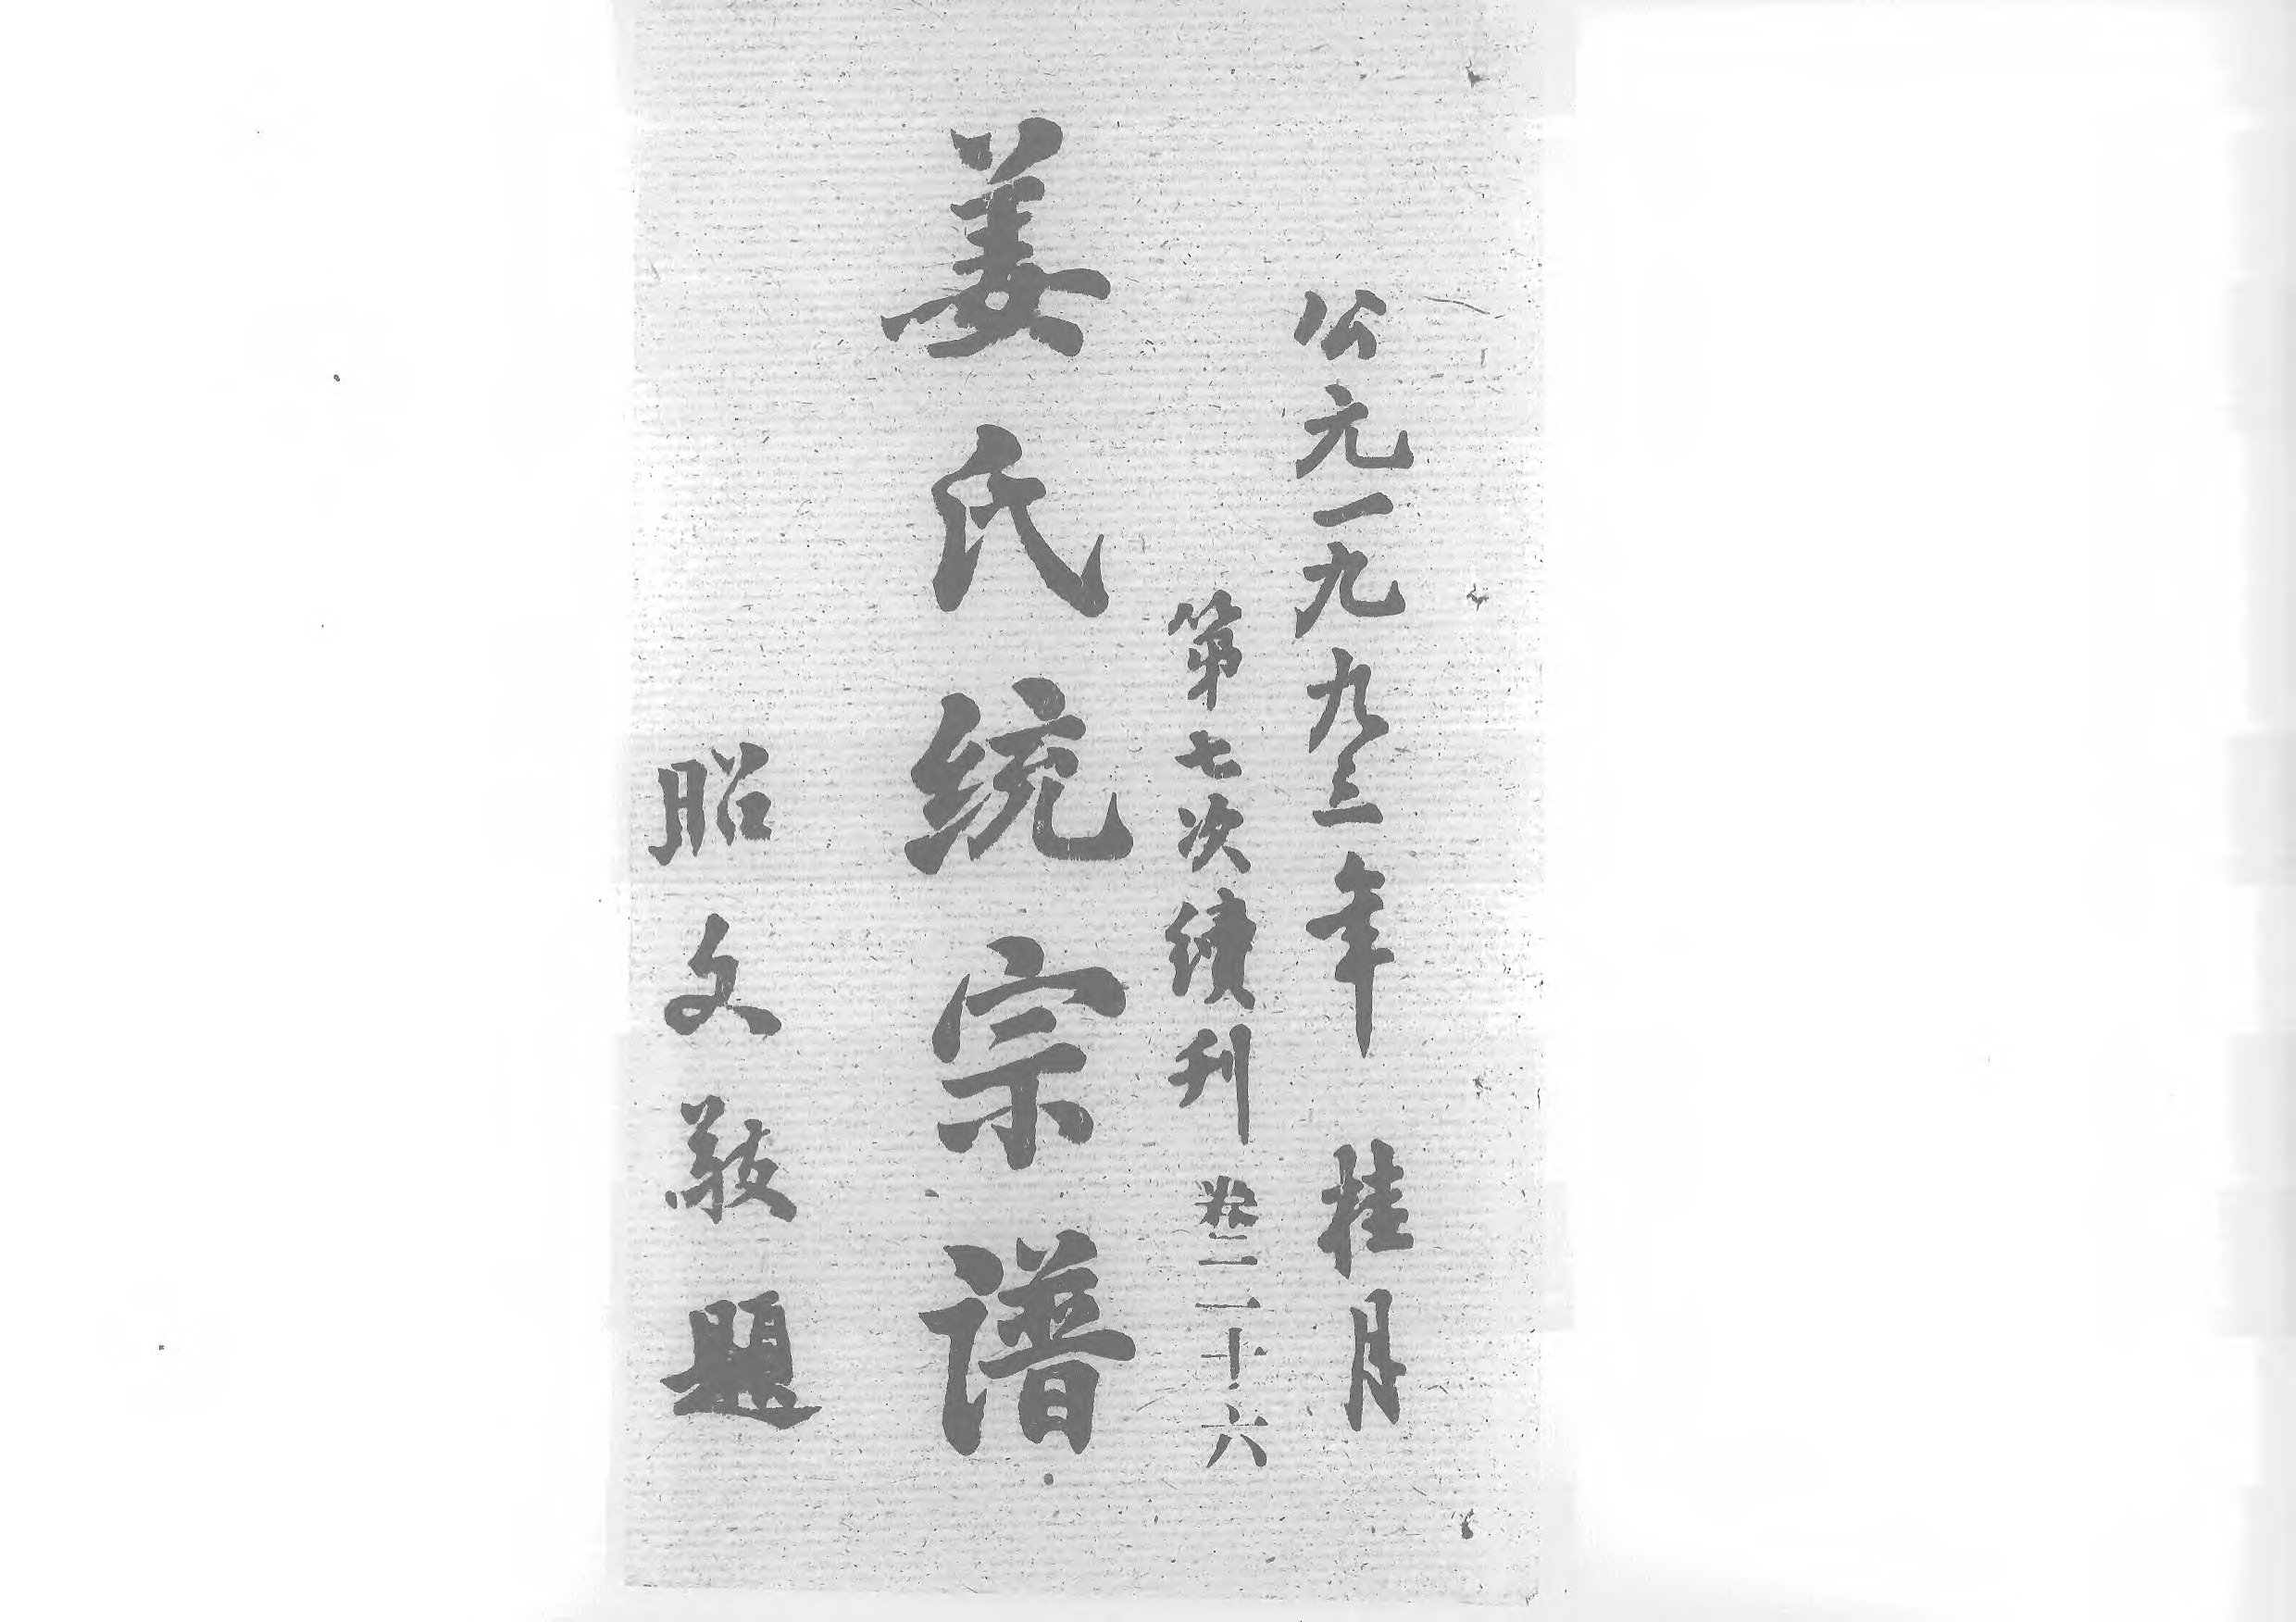 公元一九九三年 桂月
第七次續刊 卷三十六
姜氏统宗谱
昭文敬題